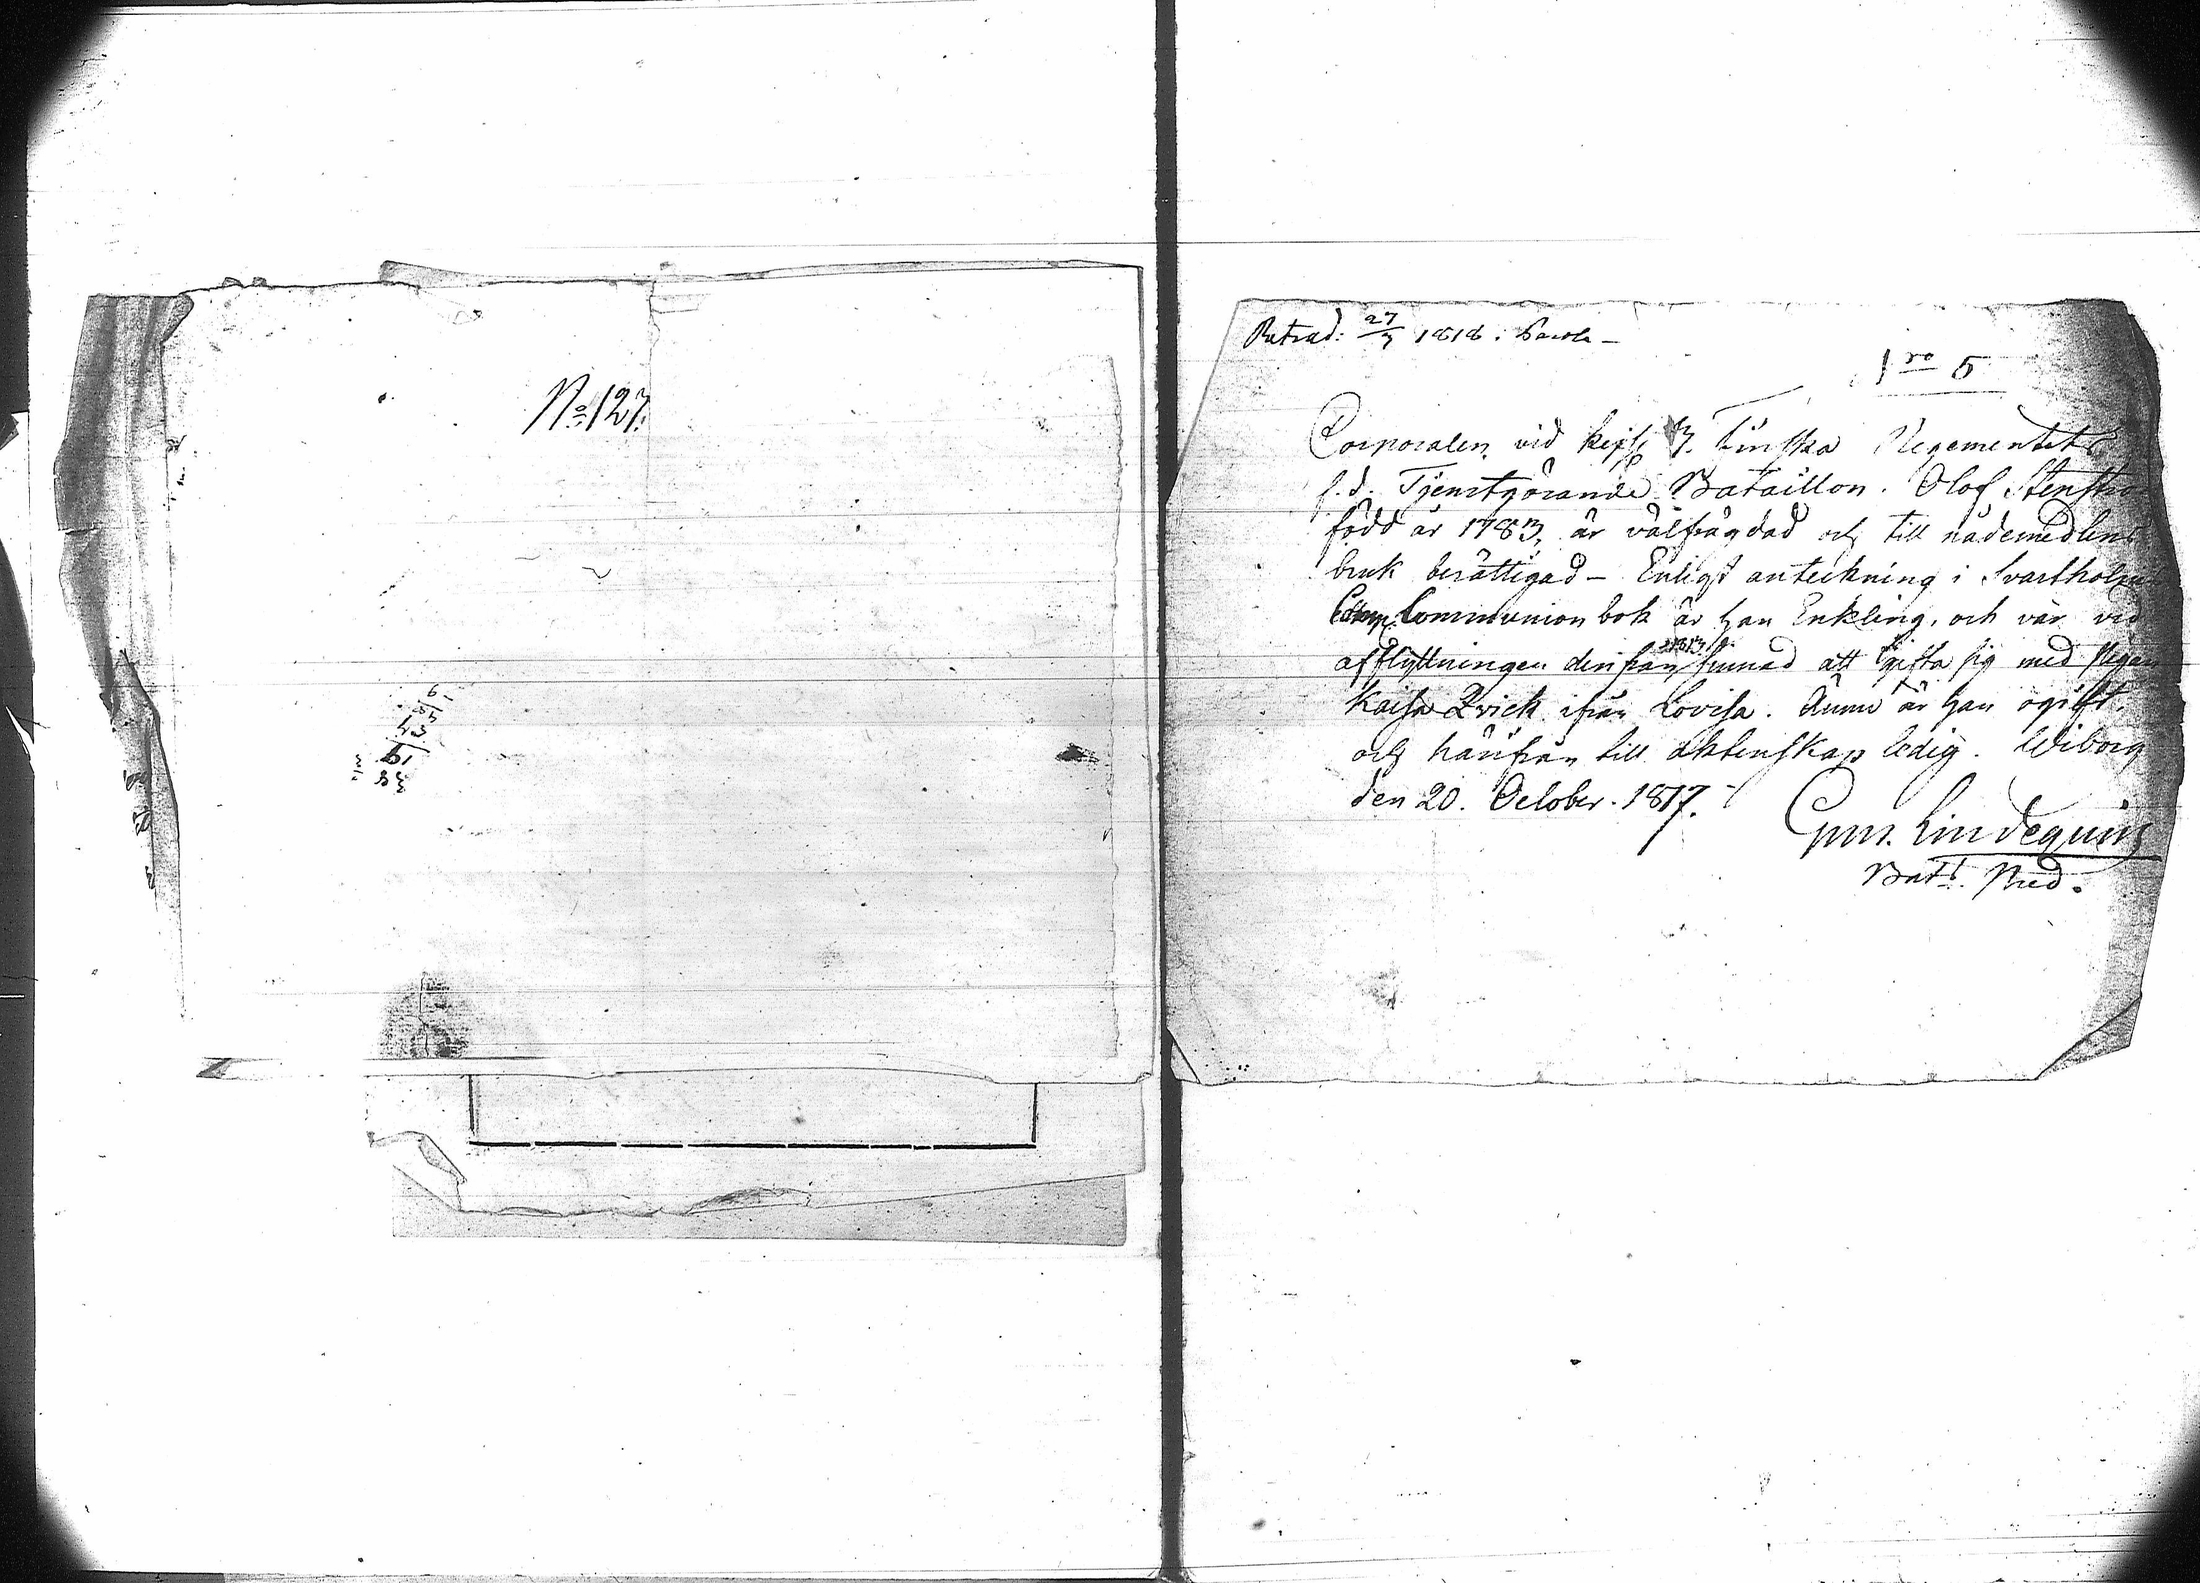 No 127.
6
43
19
38
27/3 1818.
No 5
Corporalen vid Kejs. 3. Finska Regementets
f.d. Tjenstgörande Bataillon. Olof Stenstro
född år 1783, är välfrägdad och till nådemedlens
bruk berättigad – Enligt anteckning i Svartholms
Communion bok är han Enkling, och var vid
afflyttningen derifrån sinnad att gifta sig med Pigan
Kaisa Qvick ifrån Lovisa. Ännu är han ogift.
och härifrån till äktenskap ledig. Wiborg
den 20. October. 1817.
Lindequist
Bats. Pred.